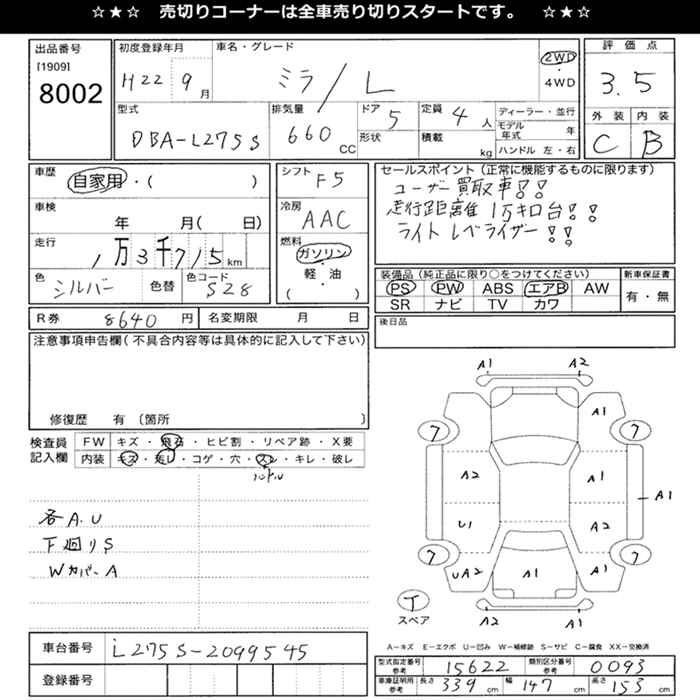 ☆★☆ 売切りコーナーは全車売り切りスタートです。 ☆★☆
出品番号
[1909]
8002
初度登録年月
H22 9月
車名・グレード
ミラ/L
2WD
・
4WD
評価点
3.5
外装 内装
C B
型式
DBA-L275S
排気量
660 CC
ドア 5
形状
定員 4人
積載 kg
ディーラー・並行
モデル年式 年
ハンドル 左・右
車歴
自家用・( )
車検
年 月( 日)
走行
1万3千715km
色
シルバー
色替
色コード
S28
シフト
F5
冷房
AAC
燃料
ガソリン
・
軽・油
・
( )
セールスポイント(正常に機能するものに限ります)
ユーザー買取車!!
走行距離 1万キロ台!!
ライト レベライザー!!
装備品(純正品に限り○をつけてください)
PS PW ABS エアB AW
SR ナビ TV カワ
新車保証書
有・無
R券 8640円 名変更期限 月 日
後日品
注意事項申告欄(不具合内容等は具体的に記入して下さい)
修復歴 有〔箇所 〕
検査員
記入欄
FW キズ・飛石・ヒビ割・リペア跡・X要
内装 キズ・汚レ・コゲ・穴・スレ・キレ・破レ
ハンドル
各A.U
下廻りS
WカバーA
A1 A2
A1
7 7
A2 A1
A1
U1 A2
7 7
UA2 A1 A1
T
スペア
A2 A1
A-キズ E-エクボ U-凹み W-補修跡 S-サビ C-腐食 XX-交換済
車台番号
L275S-2099545
登録番号
型式指定番号
参考
15622
類別区分番号
参考
0093
車庫証明用
参考
長さ 339 cm 幅 147 cm 高さ 153 cm